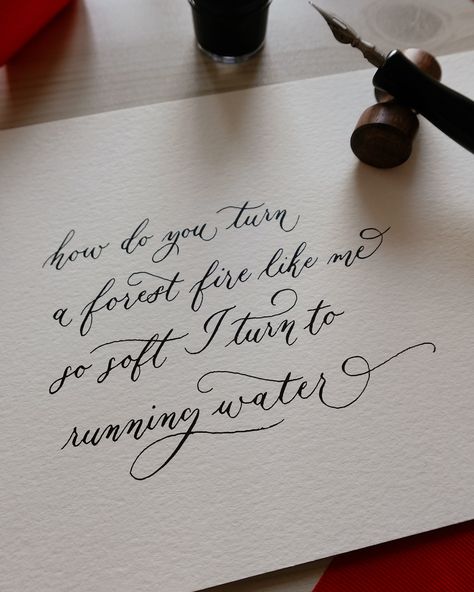 how do you turn
a forest fire like me
so soft I turn to
running water